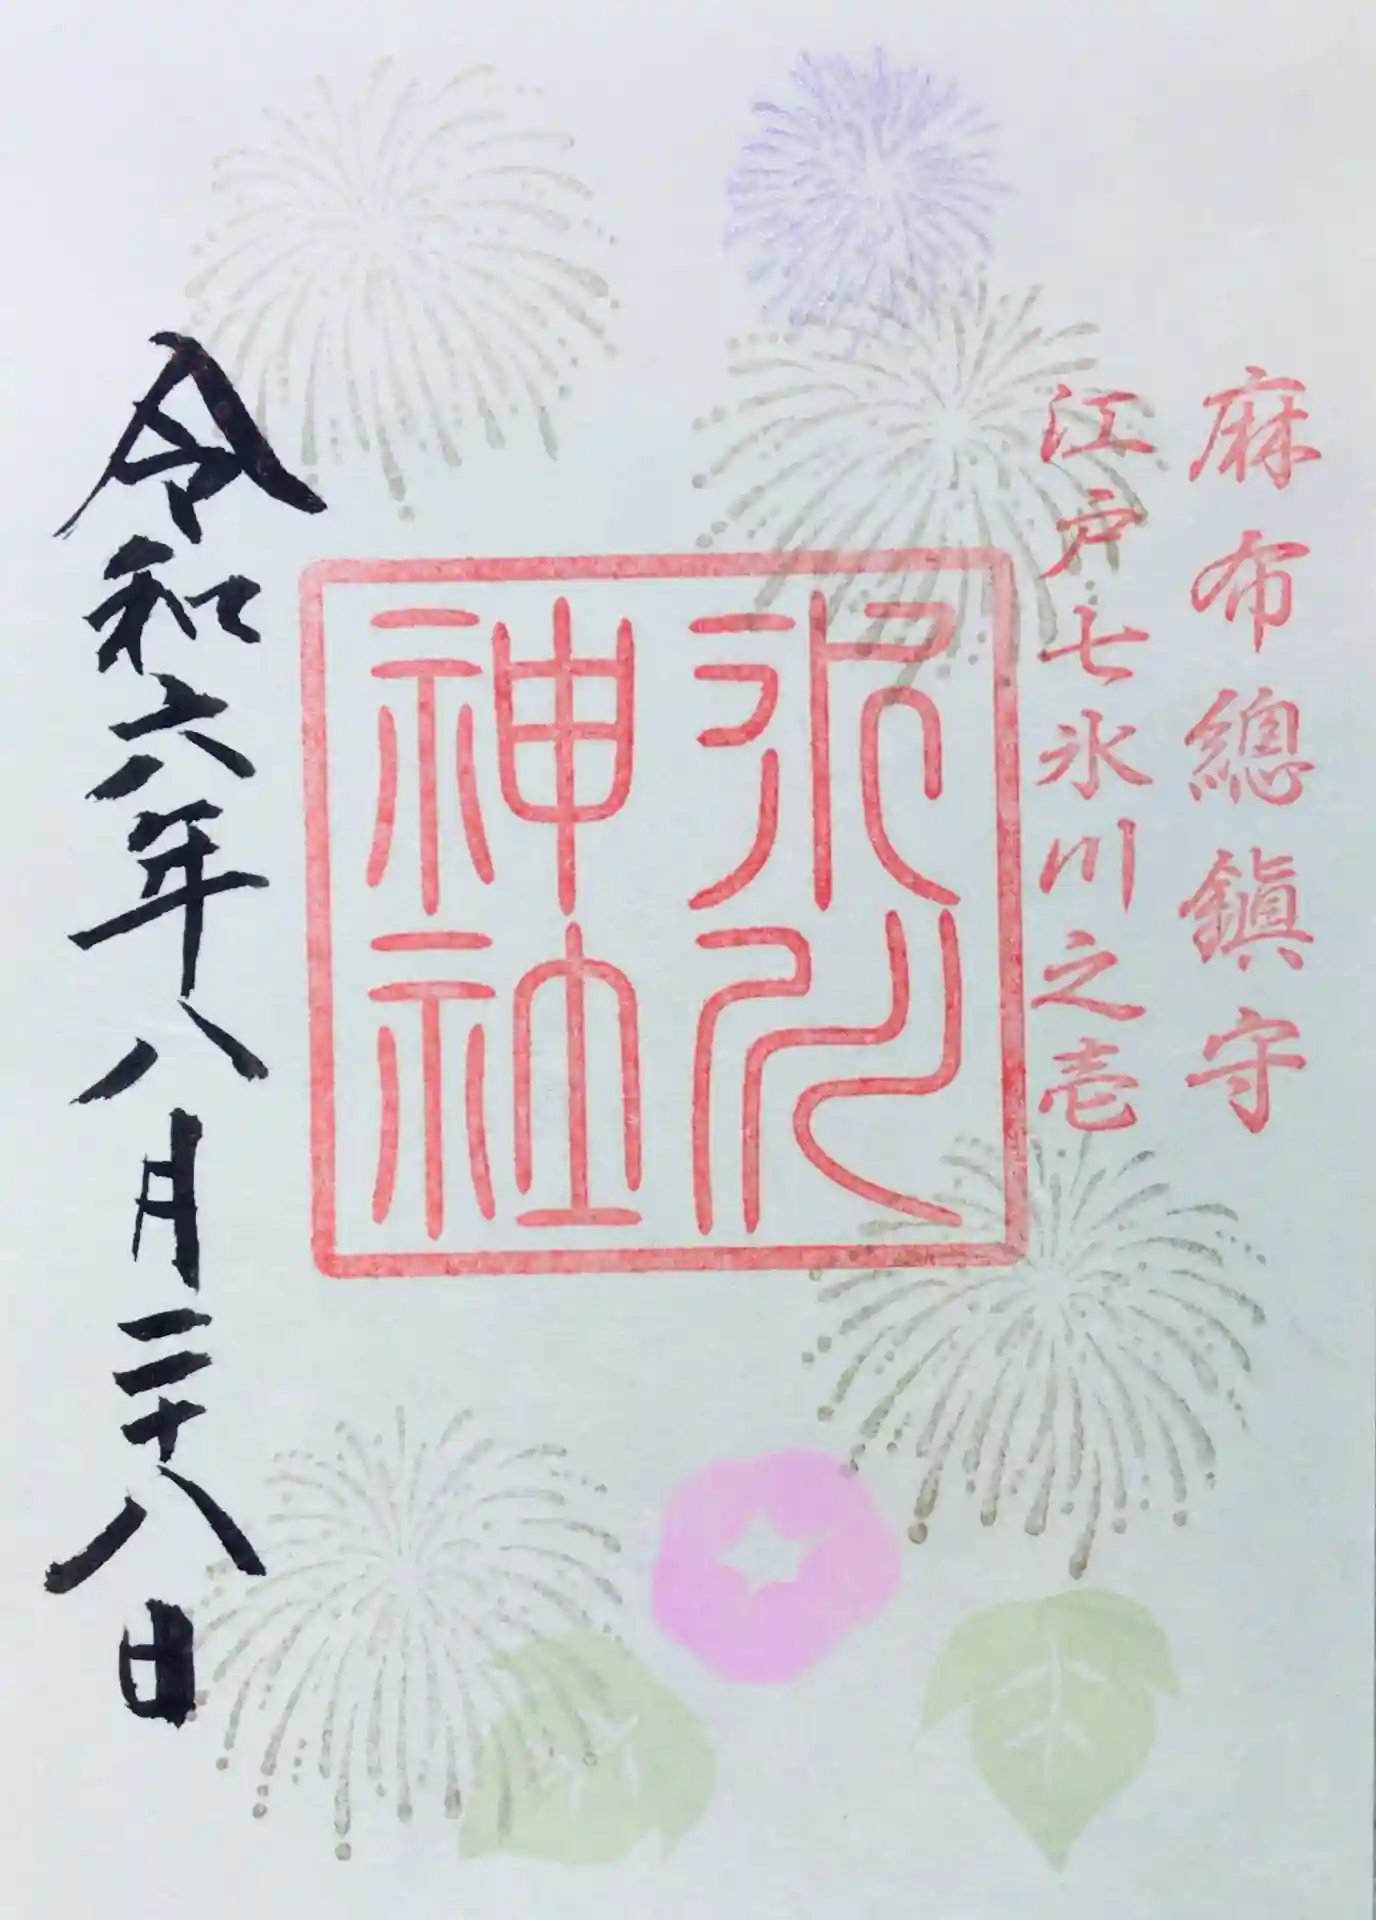 麻布總鎭守
江戸七氷川之壱
氷川
神社
令和六年八月二十八日